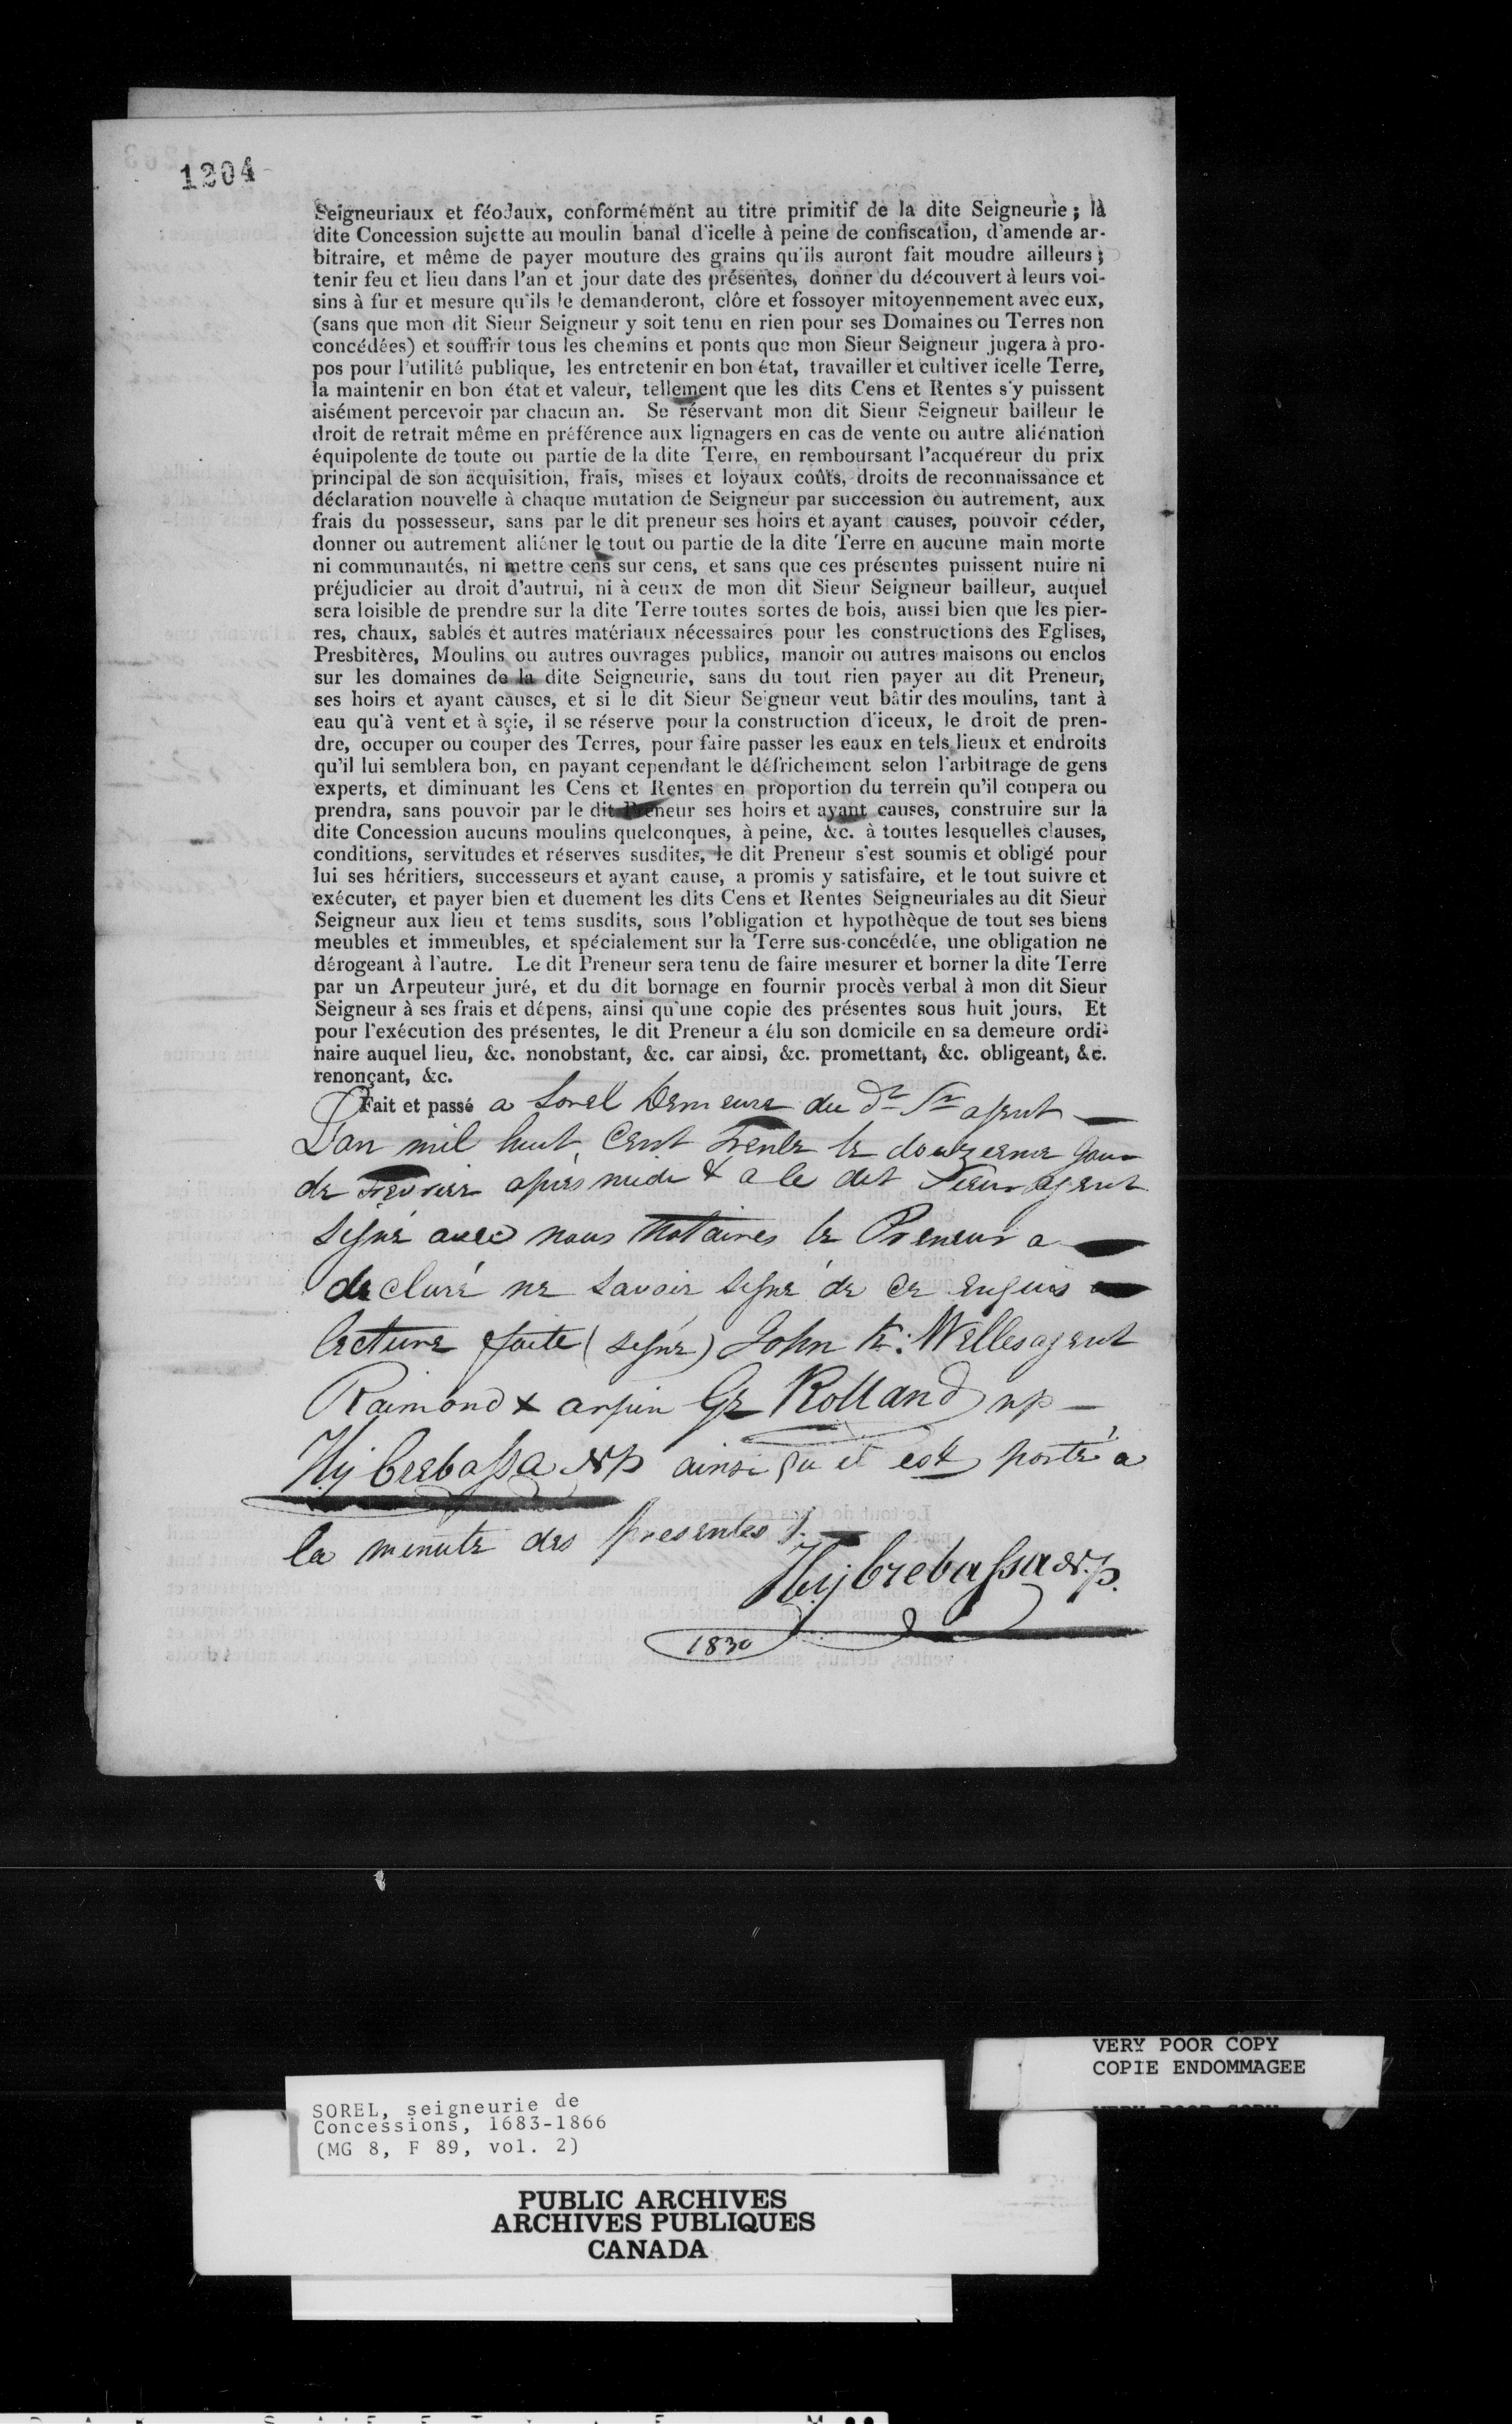 1204
Seigneuriaux et féodaux, conformément au titre primitif de la dite Seigneurie; la
dite Concession sujette au moulin banal d'icelle à peine de confiscation, d'amende ar-
bitraire, et même de payer mouture des grains qu'ils auront fait moudre ailleurs;
tenir feu et lieu dans l'an et jour date des présentes, donner du découvert à leurs voi-
sins à fur et mesure qu'ils le demanderont, clôre et fossoyer mitoyennement avec eux,
(sans que mon dit Sieur Seigneur y soit tenu en rien pour ses Domaines ou Terres non
concédées) et souffrir tous les chemins et ponts que mon Sieur Seigneur jugera à pro-
pos pour l'utilité publique, les entretenir en bon état, travailler et cultiver icelle Terre,
la maintenir en bon état et valeur, tellement que les dits Cens et Rentes s'y puissent
aisément percevoir par chacun an. Se réservant mon dit Sieur Seigneur bailleur le
droit de retrait même en préférence aux lignagers en cas de vente ou autre aliénation
équipolente de toute ou partie de la dite Terre, en remboursant l'acquéreur du prix
principal de son acquisition, frais, mises et loyaux coûts, droits de reconnaissance et
déclaration nouvelle à chaque mutation de Seigneur par succession ou autrement, aux
frais du possesseur, sans par le dit preneur ses hoirs et ayant causes, pouvoir céder,
donner ou autrement aliéner le tout ou partie de la dite Terre en aucune main morte
ni communautés, ni mettre cens sur cens, et sans que ces présentes puissent nuire ni
préjudicier au droit d'autrui, ni à ceux de mon dit Sieur Seigneur bailleur, auquel
sera loisible de prendre sur la dite Terre toutes sortes de bois, aussi bien que les pier-
res, chaux, sables et autres matériaux nécessaires pour les constructions des Eglises,
Presbitères, Moulins ou autres ouvrages publics, manoir ou autres maisons ou enclos
sur les domaines de la dite Seigneurie, sans du tout rien payer au dit Preneur,
ses hoirs et ayant causes, et si le dit Sieur Seigneur veut bâtir des moulins, tant à
eau qu'à vent et à sçie, il se réserve pour la construction d'iceux, le droit de pren-
dre, occuper ou couper des Terres, pour faire passer les eaux en tels lieux et endroits
qu'il lui semblera bon, en payant cependant le défrichement selon l'arbitrage de gens
experts, et diminuant les Cens et Rentes en proportion du terrein qu'il coupera ou
prendra, sans pouvoir par le dit Preneur ses hoirs et ayant causes, construire sur la
dite Concession aucuns moulins quelconques, à peine, &c. à toutes lesquelles clauses,
conditions, servitudes et réserves susdites, le dit Preneur s'est soumis et obligé pour
lui ses héritiers, successeurs et ayant cause, a promis y satisfaire, et le tout suivre et
exécuter, et payer bien et duement les dits Cens et Rentes Seigneuriales au dit Sieur
Seigneur aux lieu et tems susdits, sous l'obligation et hypothèque de tout ses biens
meubles et immeubles, et spécialement sur la Terre sus-concédée, une obligation ne
dérogeant à l'autre. Le dit Preneur sera tenu de faire mesurer et borner la dite Terre
par un Arpeuteur juré, et du dit bornage en fournir procès verbal à mon dit Sieur
Seigneur à ses frais et dépens, ainsi qu'une copie des présentes sous huit jours. Et
pour l'exécution des présentes, le dit Preneur a élu son domicile en sa demeure ordi-
naire auquel lieu, &c. nonobstant, &c. car ainsi, &c. promettant, &c. obligeant, &c.
renonçant, &c.
Fait et passé a Sorel Demeure du dt Sr agent
L'an mil huit Cent Trente le douzieme jour
de Fevrier apres midi & a le dit Sieur agent
signé avec nous Notaires le Preneur a
declaré ne savoir signé de ce enquis
lecture faite (signé) John K: Welles agent
Raimond x arpin Gr Rolland np
Hy Crebassa Np ainsi qu il est porté a
la minute des presentes /.
Hy Crebassa N.p.
1830
VERY POOR COPY
COPIE ENDOMMAGEE
SOREL, seigneurie de
Concessions, 1683-1866
(MG 8, F 89, vol. 2)
PUBLIC ARCHIVES
ARCHIVES PUBLIQUES
CANADA